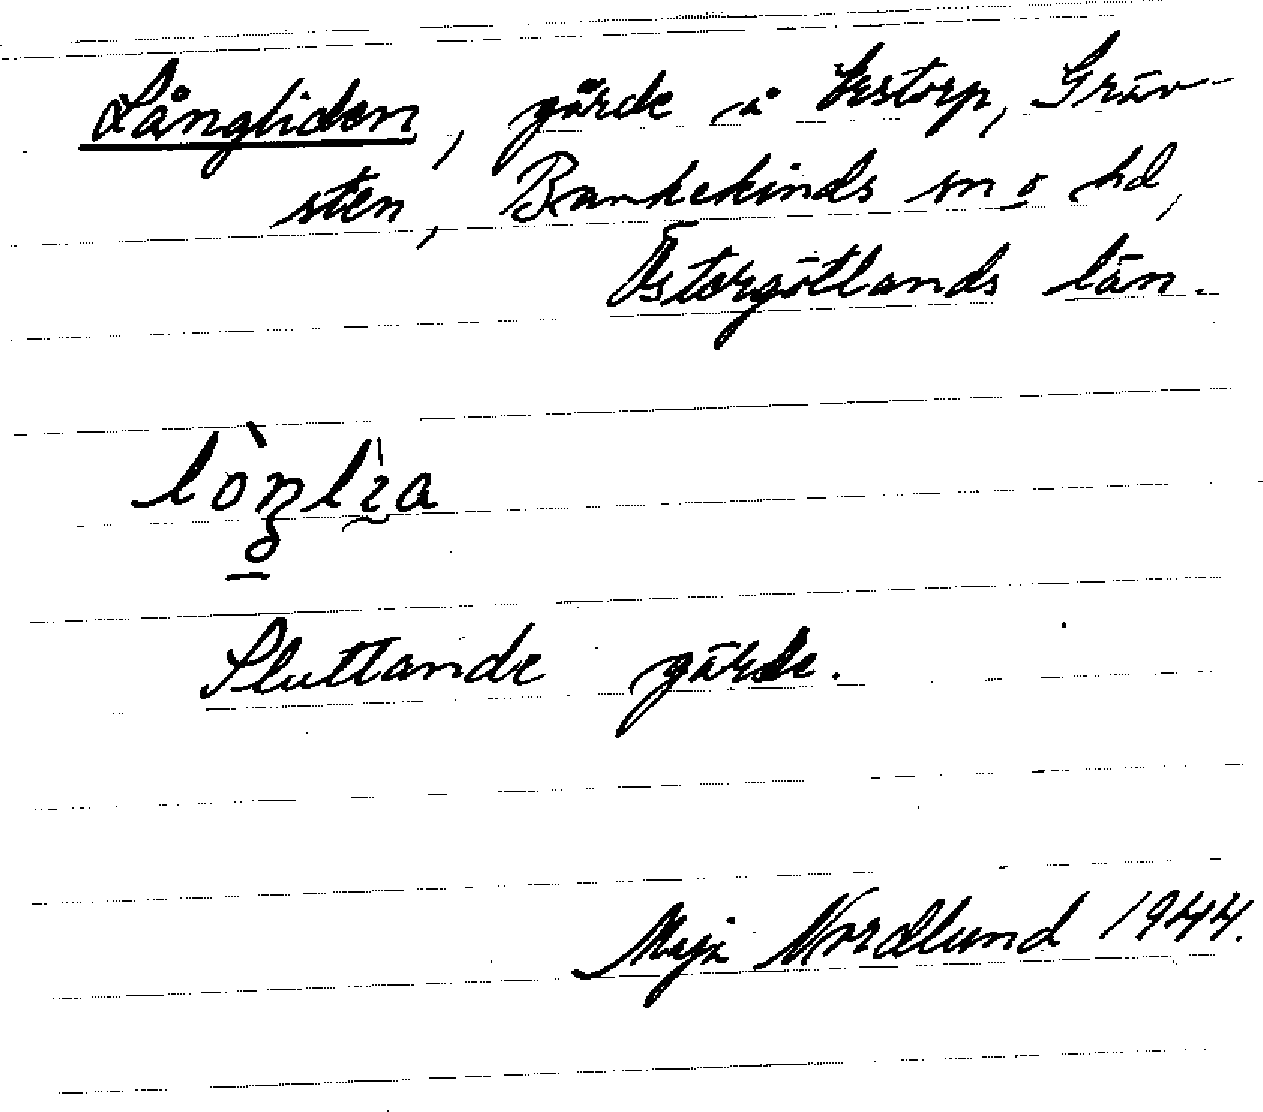 Långliden, gärde å Lestorp, Gräv-
sten, Bankekinds sn o hd,
Östergötlands län.
Sluttande gärde.
Maja Nordlund 1944.